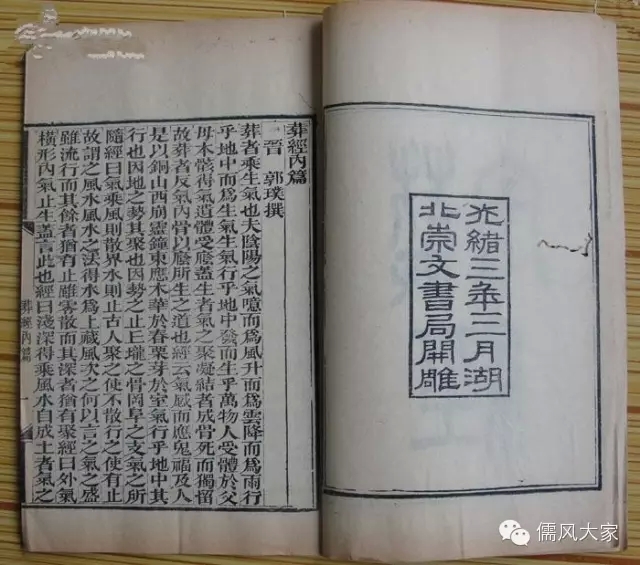 光緒三年三月湖
北崇文書局開雕
葬經內篇
晉 郭璞撰
葬者乘生氣也夫陰陽之氣噫而爲風升而爲雲降而爲雨行
乎地中而爲生氣生氣行乎地中發而生乎萬物人受體於父
母本骸得氣遺體受廕蓋生者氣之聚凝結者成骨死而獨留
故葬者反氣內骨以廕所生之道也經云氣感而應鬼福及人
是以銅山西崩靈鐘東應木華於春栗芽於室氣行乎地中其
行也因地之勢其聚也因勢之止丘壠之骨岡阜之支氣之所
隨經曰氣乘風則散界水則止古人聚之使不散行之使有止
故謂之風水風水之法得水爲上藏風次之何以言之氣之盛
雖流行而其餘者猶有止雖零散而其深者猶有聚經曰外氣
橫形內氣止生蓋言此也經曰淺深得乘風水自成土者氣之
葬經內篇 一
儒风大家